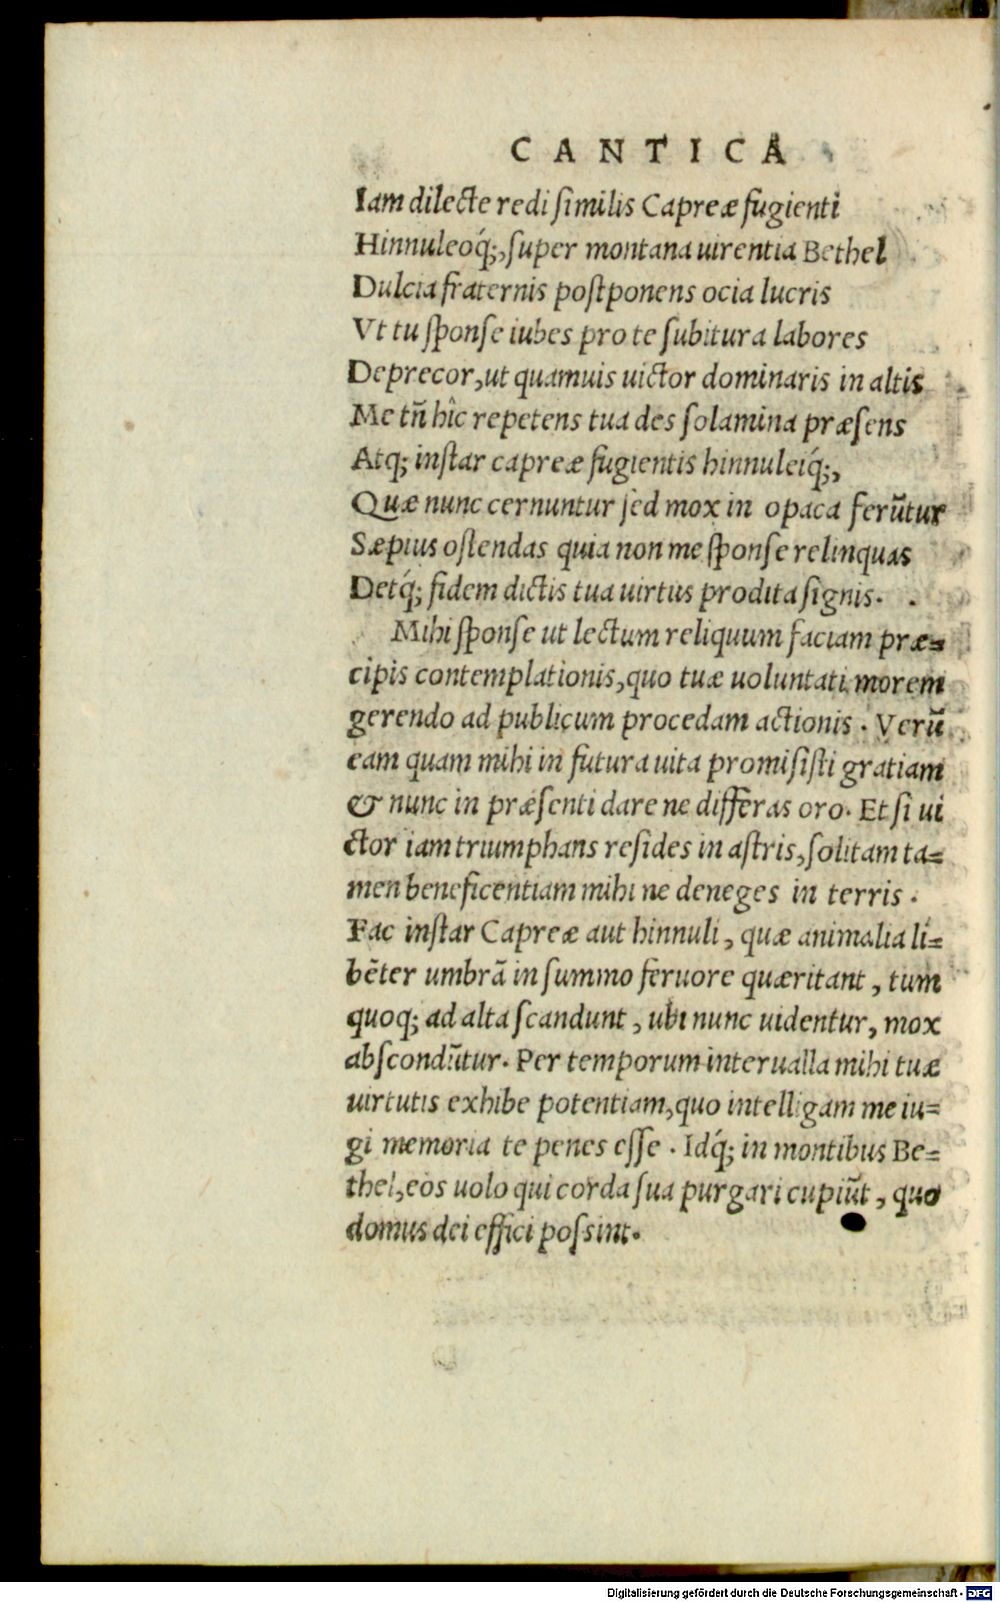 CANTICA
Iam dilecte redi similis Capreæ fugienti
Hinnuleoq́;, super montana uirentia Bethel
Dulcia fraternis postponens ocia lucris
Vt tu sponse iubes pro te subitura labores
Deprecor, ut quamuis uictor dominaris in altis
Me tñ hîc repetens tua des solamina præsens
Atq; instar capreæ fugientis hinnuleiq́;,
Quæ nunc cernuntur sed mox in opaca ferũtur
Sæpius ostendas quia non me sponse relinquas
Detq́; fidem dictis tua uirtus prodita signis.
Mihi sponse ut lectum reliquum faciam præ=
cipis contemplationis, quo tuæ uoluntati morem
gerendo ad publicum procedam actionis. Verũ
eam quam mihi in futura uita promisisti gratiam
& nunc in præsenti dare ne differas oro. Et si ui
ctor iam triumphans resides in astris, solitam ta=
men beneficentiam mihi ne deneges in terris.
Fac instar Capreæ aut hinnuli, quæ animalia li=
bẽter umbrã in summo feruore quæritant, tum
quoq; ad alta scandunt, ubi nunc uidentur, mox
abscondũtur. Per temporum interualla mihi tuæ
uirtutis exhibe potentiam, quo intelligam me iu=
gi memoria te penes esse. Idq́; in montibus Be=
thel, eos uolo qui corda sua purgari cupiũt, quo
domus dei effici possint.
Digitalisierung gefördert durch die Deutsche Forschungsgemeinschaft - DFG